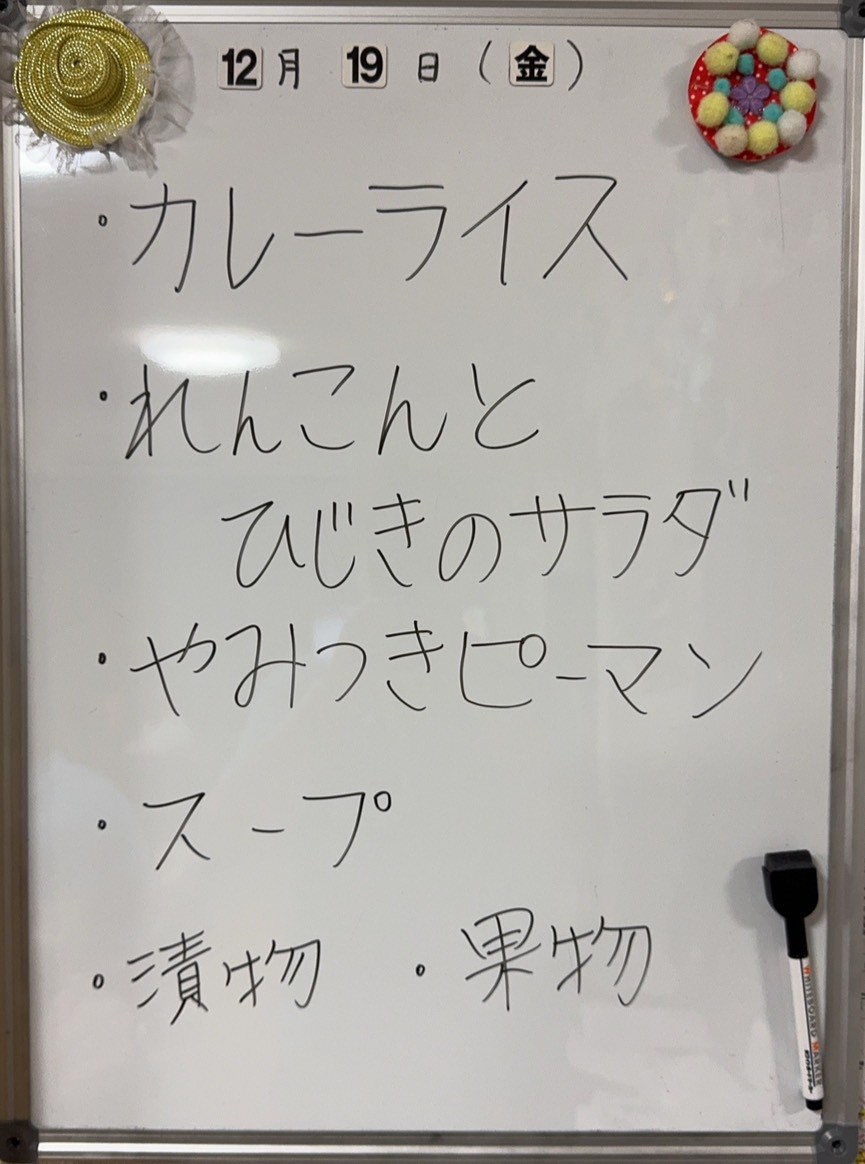 12月 19日（金）
・カレーライス
・れんこんと
ひじきのサラダ
・やみつきピーマン
・スープ
・漬物 ・果物
WHITEBOARD MARKER